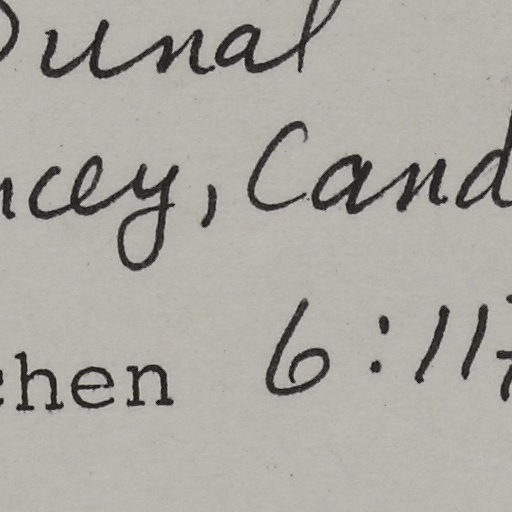 Dunal
ncey, Cand
chen 6:117